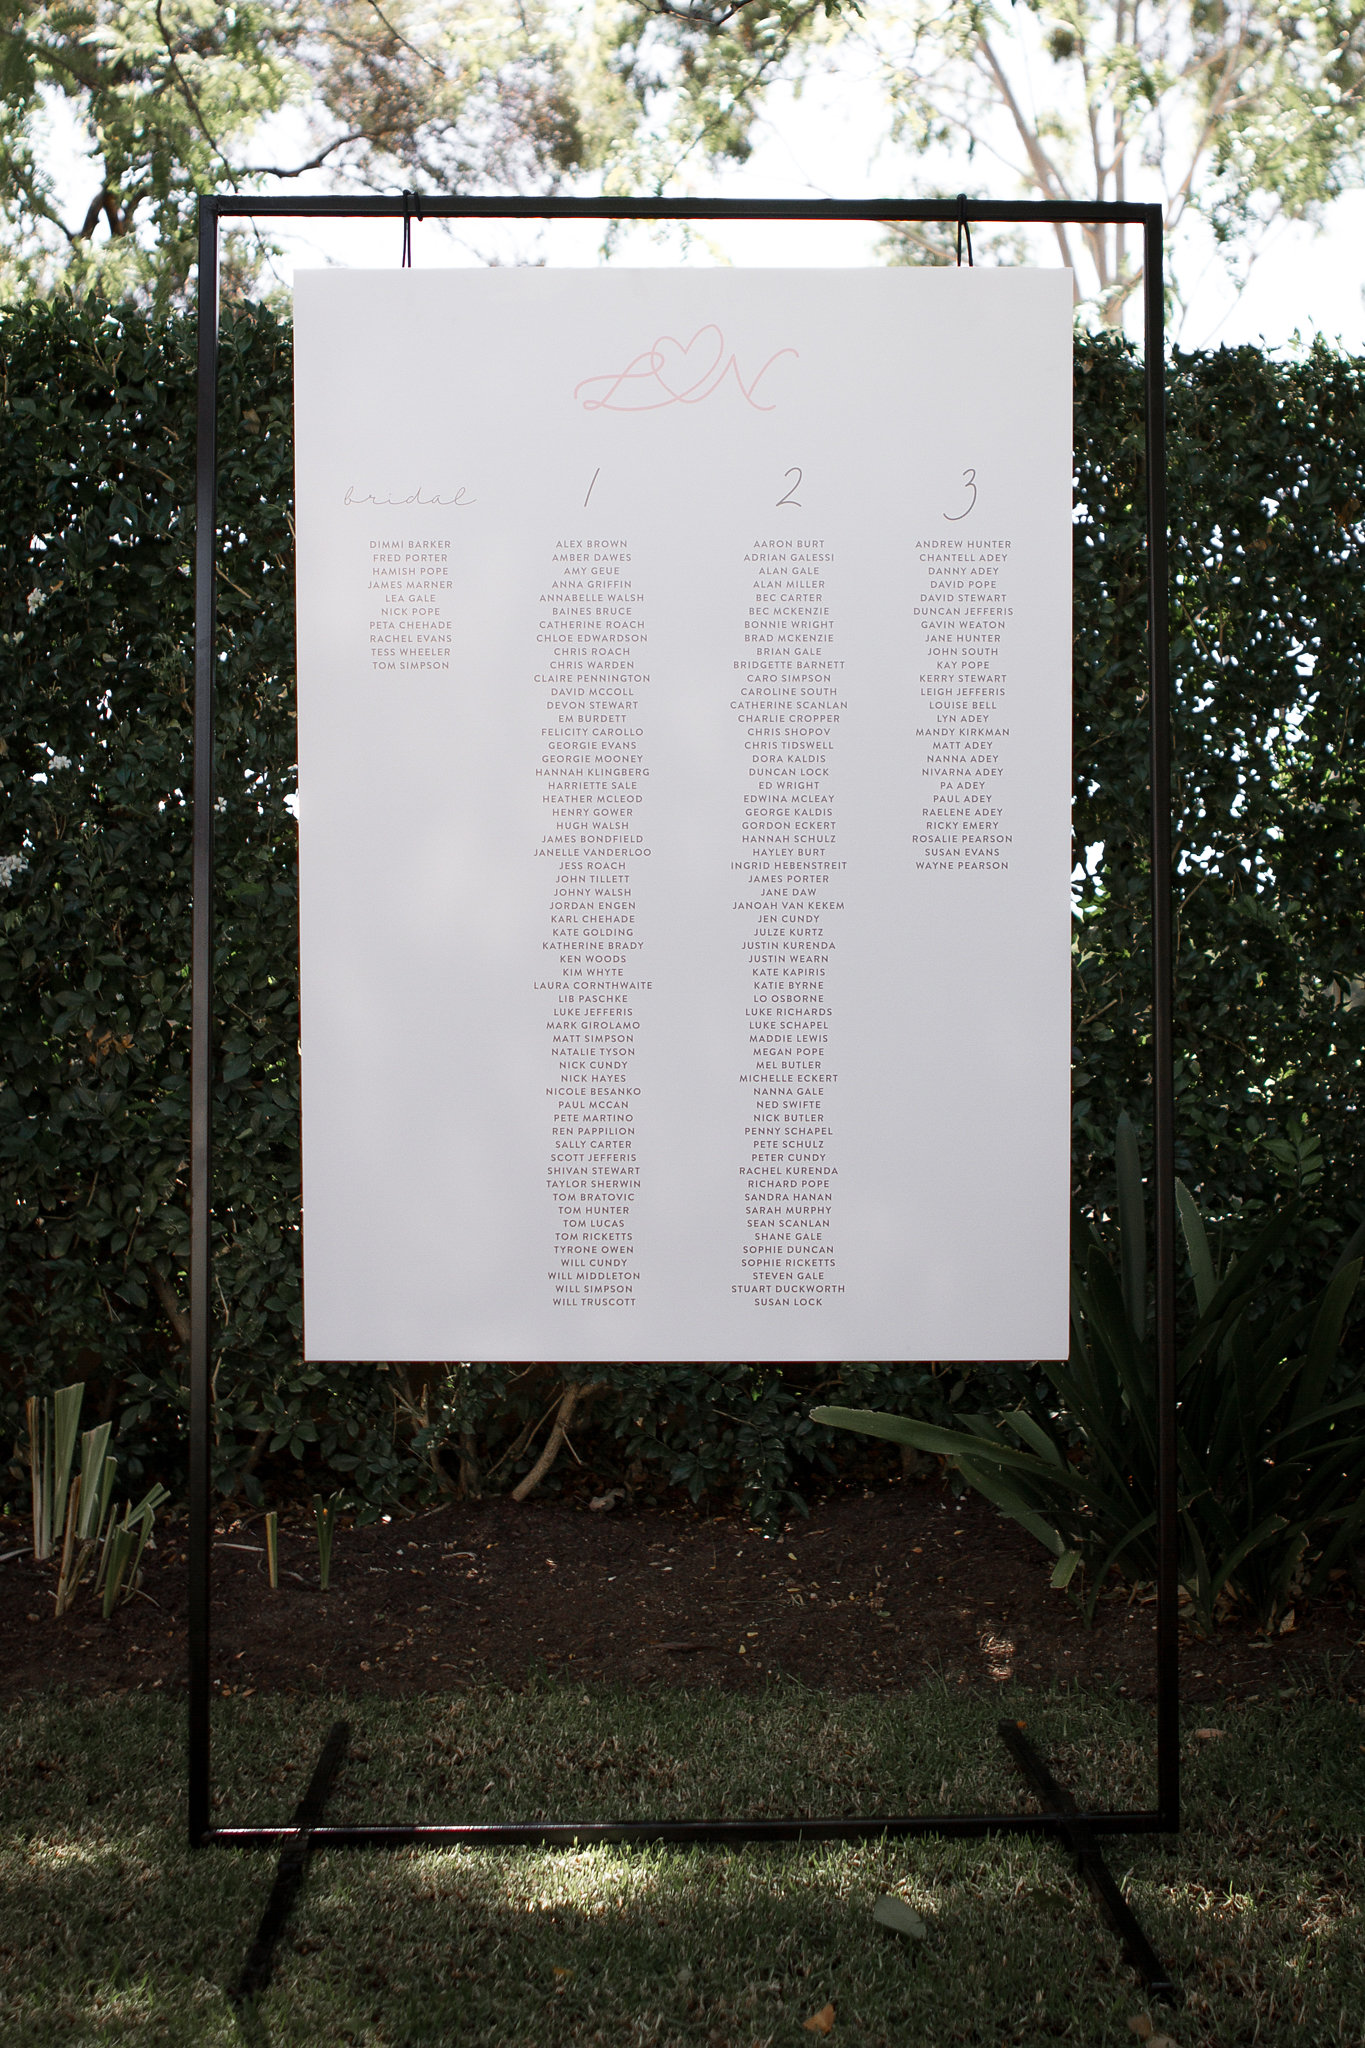 L N
bridal
DIMMI BARKER
FRED PORTER
HAMISH POPE
JAMES MARNER
LEA GALE
NICK POPE
PETA CHEHADE
RACHEL EVANS
TESS WHEELER
TOM SIMPSON
1
ALEX BROWN
AMBER DAWES
AMY GEUE
ANNA GRIFFIN
ANNABELLE WALSH
BAINES BRUCE
CATHERINE ROACH
CHLOE EDWARDSON
CHRIS ROACH
CHRIS WARDEN
CLAIRE PENNINGTON
DAVID MCCOLL
DEVON STEWART
EM BURDETT
FELICITY CAROLLO
GEORGIE EVANS
GEORGIE MOONEY
HANNAH KLINGBERG
HARRIETTE SALE
HEATHER MCLEOD
HENRY GOWER
HUGH WALSH
JAMES BONDFIELD
JANELLE VANDERLOO
JESS ROACH
JOHN TILLETT
JOHNY WALSH
JORDAN ENGEN
KARL CHEHADE
KATE GOLDING
KATHERINE BRADY
KEN WOODS
KIM WHYTE
LAURA CORNTHWAITE
LIB PASCHKE
LUKE JEFFERIS
MARK GIROLAMO
MATT SIMPSON
NATALIE TYSON
NICK CUNDY
NICK HAYES
NICOLE BESANKO
PAUL MCCAN
PETE MARTINO
REN PAPPILION
SALLY CARTER
SCOTT JEFFERIS
SHIVAN STEWART
TAYLOR SHERWIN
TOM BRATOVIC
TOM HUNTER
TOM LUCAS
TOM RICKETTS
TYRONE OWEN
WILL CUNDY
WILL MIDDLETON
WILL SIMPSON
WILL TRUSCOTT
2
AARON BURT
ADRIAN GALESSI
ALAN GALE
ALAN MILLER
BEC CARTER
BEC MCKENZIE
BONNIE WRIGHT
BRAD MCKENZIE
BRIAN GALE
BRIDGETTE BARNETT
CARO SIMPSON
CAROLINE SOUTH
CATHERINE SCANLAN
CHARLIE CROPPER
CHRIS SHOPOV
CHRIS TIDSWELL
DORA KALDIS
DUNCAN LOCK
ED WRIGHT
EDWINA MCLEAY
GEORGE KALDIS
GORDON ECKERT
HANNAH SCHULZ
HAYLEY BURT
INGRID HEBENSTREIT
JAMES PORTER
JANE DAW
JANOAH VAN KEKEM
JEN CUNDY
JULZE KURTZ
JUSTIN KURENDA
JUSTIN WEARN
KATE KAPIRIS
KATIE BYRNE
LO OSBORNE
LUKE RICHARDS
LUKE SCHAPEL
MADDIE LEWIS
MEGAN POPE
MEL BUTLER
MICHELLE ECKERT
NANNA GALE
NED SWIFTE
NICK BUTLER
PENNY SCHAPEL
PETE SCHULZ
PETER CUNDY
RACHEL KURENDA
RICHARD POPE
SANDRA HANAN
SARAH MURPHY
SEAN SCANLAN
SHANE GALE
SOPHIE DUNCAN
SOPHIE RICKETTS
STEVEN GALE
STUART DUCKWORTH
SUSAN LOCK
3
ANDREW HUNTER
CHANTELL ADEY
DANNY ADEY
DAVID POPE
DAVID STEWART
DUNCAN JEFFERIS
GAVIN WEATON
JANE HUNTER
JOHN SOUTH
KAY POPE
KERRY STEWART
LEIGH JEFFERIS
LOUISE BELL
LYN ADEY
MANDY KIRKMAN
MATT ADEY
NANNA ADEY
NIVARNA ADEY
PA ADEY
PAUL ADEY
RAELENE ADEY
RICKY EMERY
ROSALIE PEARSON
SUSAN EVANS
WAYNE PEARSON